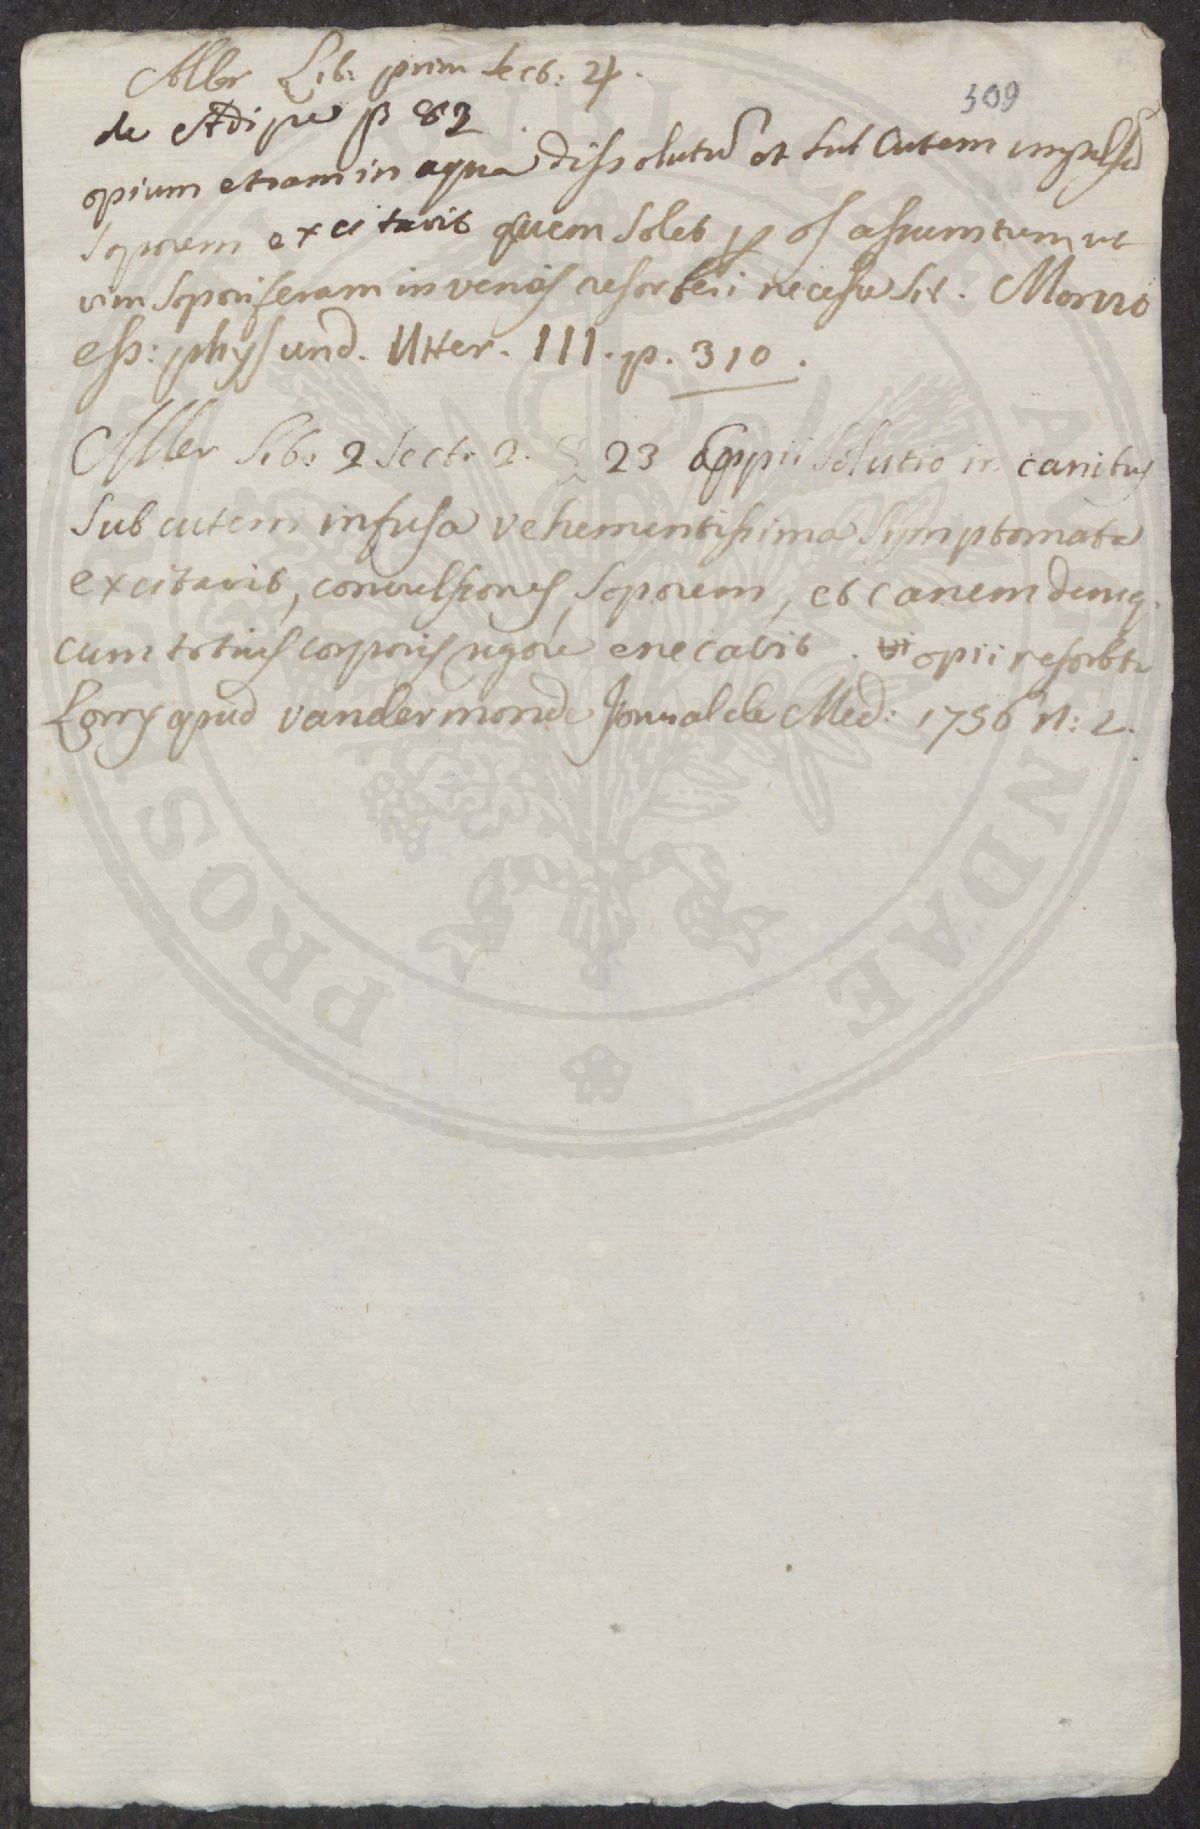 Aller Lib: prim sect: 4.
309
de Adipe p 82
opium etiam in aqua dissolutū et sub cutem impulsū
soporem excitavit quem solet p os assumtum ut
vim soporiferam in venas resorberi necesse sit. Monro
ess: phys und. litter. III. p. 310.
Aller Lib: 2 Sect: 2. § 23 oppii solutio in canibus
sub cutem infusa vehementissima symptomata
excitavit, convulsiones, soporem, et canem deniq.
cum totius corporis rigore enecavit. vi opii resorbta
Lorry apud vandermonde Journal de Med: 1756 N: 2.
PROS